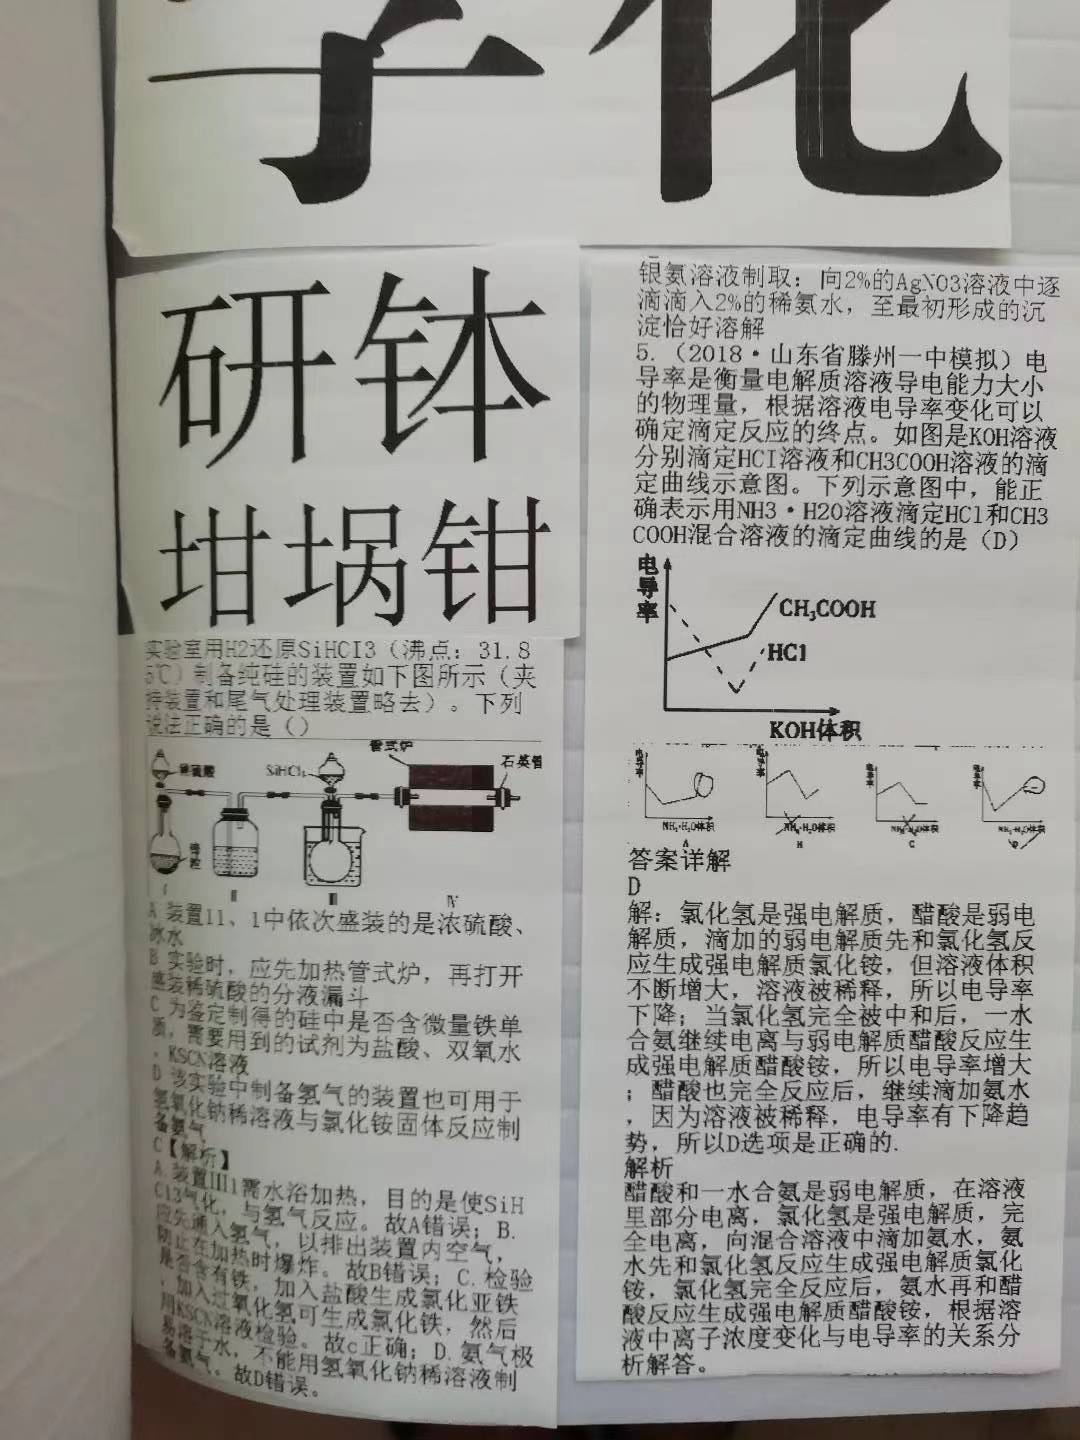 学化
研钵
坩埚钳
实验室用H2还原SiHCI3（沸点：31.8
5℃）制备纯硅的装置如下图所示（夹
持装置和尾气处理装置略去）。下列
说法正确的是（）
稀硫酸
SiHCl₃
管式炉
石英管
锌粒
I
II
III
IV
A 装置II、1中依次盛装的是浓硫酸、
冰水
B 实验时，应先加热管式炉，再打开
盛装稀硫酸的分液漏斗
C 为鉴定制得的硅中是否含微量铁单
质，需要用到的试剂为盐酸、双氧水
、KSCN溶液
D 该实验中制备氢气的装置也可用于
氢氧化钠稀溶液与氯化铵固体反应制
备氨气
C【解析】
A.装置III1需水浴加热，目的是使SiH
Cl3气化，与氢气反应。故A错误；B.
应先通入氢气，以排出装置内空气，
防止在加热时爆炸。故B错误；C.检验
是否含有铁，加入盐酸生成氯化亚铁
，加入过氧化氢可生成氯化铁，然后
用KSCN溶液检验。故c正确；D.氨气极
易溶于水，不能用氢氧化钠稀溶液制
备氨气。故D错误。
银氨溶液制取：向2%的AgNO3溶液中逐
滴滴入2%的稀氨水，至最初形成的沉
淀恰好溶解
5.（2018·山东省滕州一中模拟）电
导率是衡量电解质溶液导电能力大小
的物理量，根据溶液电导率变化可以
确定滴定反应的终点。如图是KOH溶液
分别滴定HCI溶液和CH3COOH溶液的滴
定曲线示意图。下列示意图中，能正
确表示用NH3·H2O溶液滴定HCl和CH3
COOH混合溶液的滴定曲线的是（D）
电导率
CH₃COOH
HCl
KOH体积
电导率
NH₃·H₂O体积
A
电导率
NH₃·H₂O体积
电导率
NH₃·H₂O体积
C
电导率
NH₃·H₂O体积
D
答案详解
D
解：氯化氢是强电解质，醋酸是弱电
解质，滴加的弱电解质先和氯化氢反
应生成强电解质氯化铵，但溶液体积
不断增大，溶液被稀释，所以电导率
下降；当氯化氢完全被中和后，一水
合氨继续电离与弱电解质醋酸反应生
成强电解质醋酸铵，所以电导率增大
；醋酸也完全反应后，继续滴加氨水
，因为溶液被稀释，电导率有下降趋
势，所以D选项是正确的.
解析
醋酸和一水合氨是弱电解质，在溶液
里部分电离，氯化氢是强电解质，完
全电离，向混合溶液中滴加氨水，氨
水先和氯化氢反应生成强电解质氯化
铵，氯化氢完全反应后，氨水再和醋
酸反应生成强电解质醋酸铵，根据溶
液中离子浓度变化与电导率的关系分
析解答。